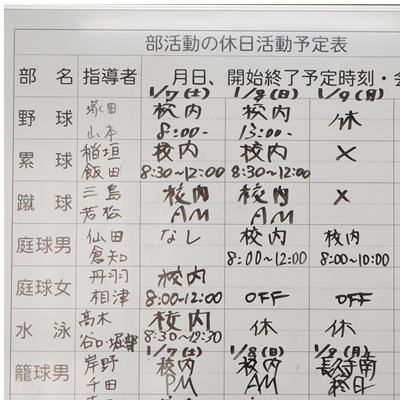 部活動の休日活動予定表
部 名 指導者 月日、開始終了予定時刻・会
1/7(土) 1/8(日) 1/9(月)
野 球 塚田 校内 校内 休
山本 8:00- 13:00-
累 球 稲垣 校内 校内 ×
飯田 8:30~12:00 8:30~12:00
蹴 球 三島 校内 校内 ×
若松 AM AM
庭球男 仙田 なし 校内 校内
倉知 8:00~12:00 8:00~10:00
庭球女 丹羽 校内
相津 8:00~12:00 OFF OFF
水 泳 高木 校内 休 休
谷口・堀部 8:30~12:30
1/7(土) 1/8(日) 1/9(月)
籠球男 岸野 校内 校内 長守南
千田 PM AM 終日